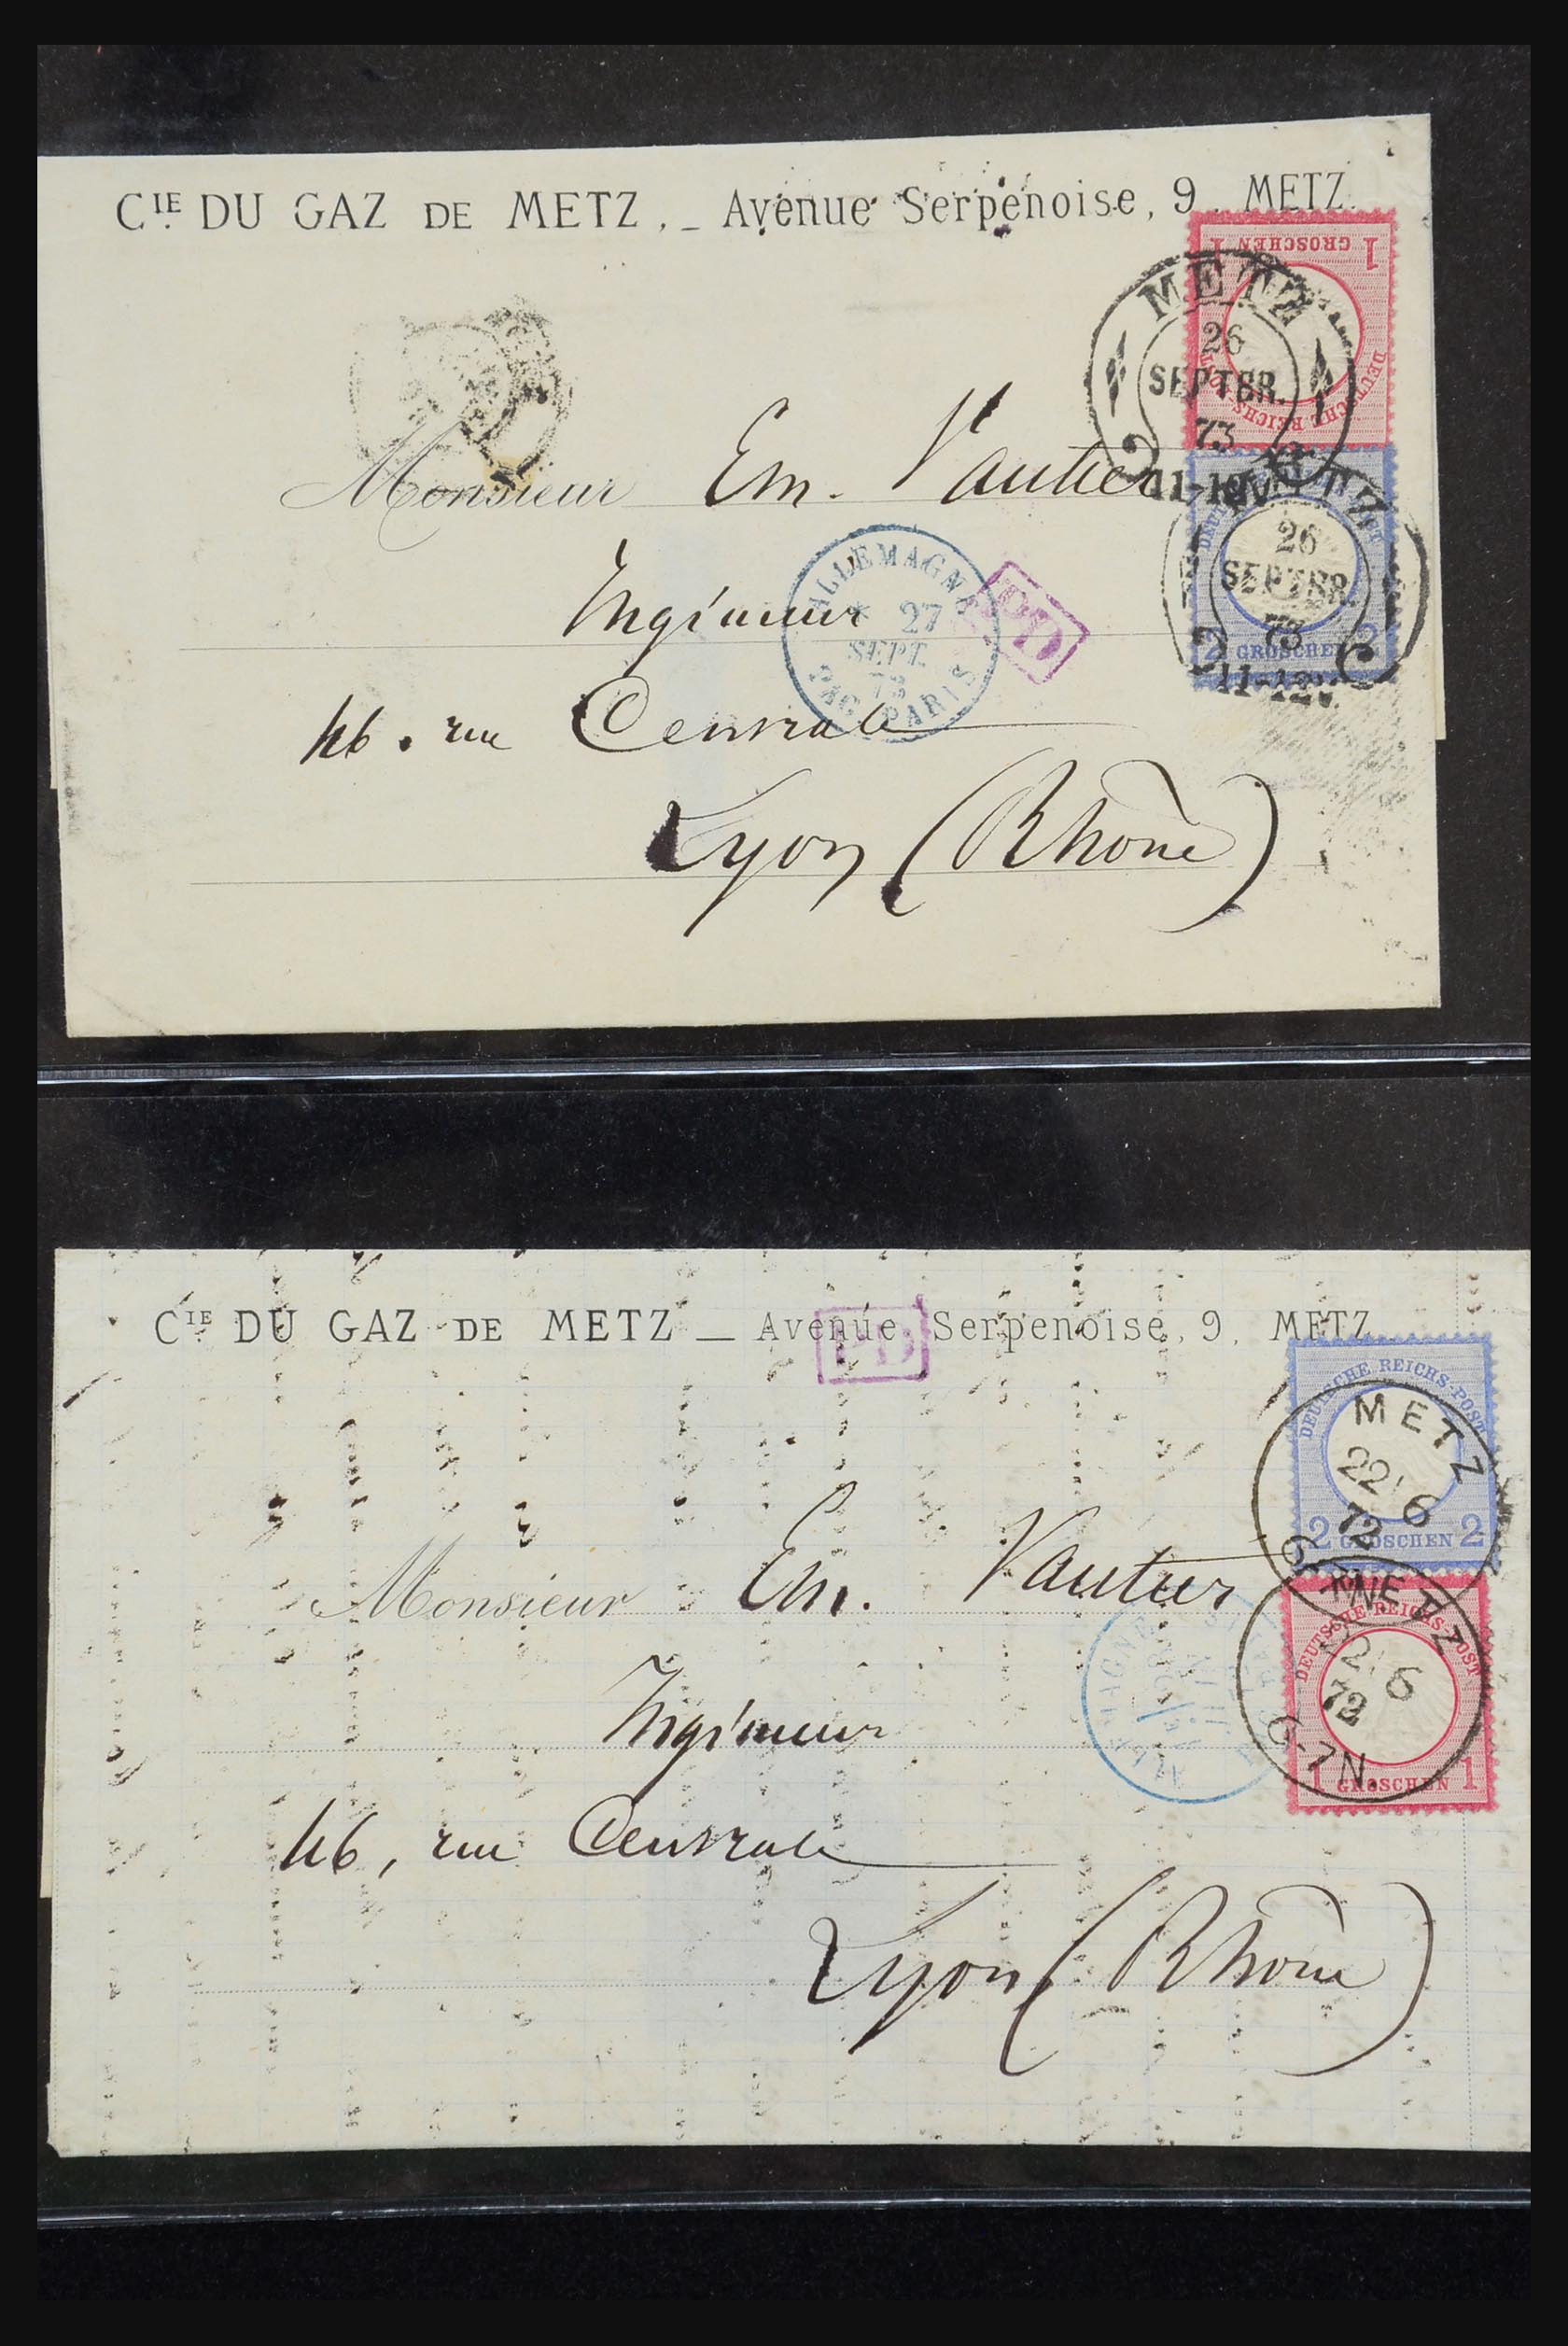 CIE DU GAZ DE METZ. _ Avenue Serpenoise, 9. METZ.
1 GROSCHEN 1
DEUTSCHE REICHS-POST
METZ
26
SEPTBR.
73
Monsieur Em. Vautier
METZ
26
SEPTBR.
73
11-12V.
2 GROSCHEN 2
ALLEMAGNE
27
SEPT.
73
PARIS
PD
Ingénieur
46. rue Centrale
Lyon (Rhône)
CIE DU GAZ DE METZ — Avenue Serpenoise, 9, METZ
PD
DEUTSCHE REICHS-POST
2 GROSCHEN 2
METZ
22 6
72
Monsieur Em. Vautier
DEUTSCHE REICHS-POST
1 GROSCHEN 1
METZ
22 6
72
6-7N.
Ingénieur
46, rue Centrale
Lyon (Rhône)